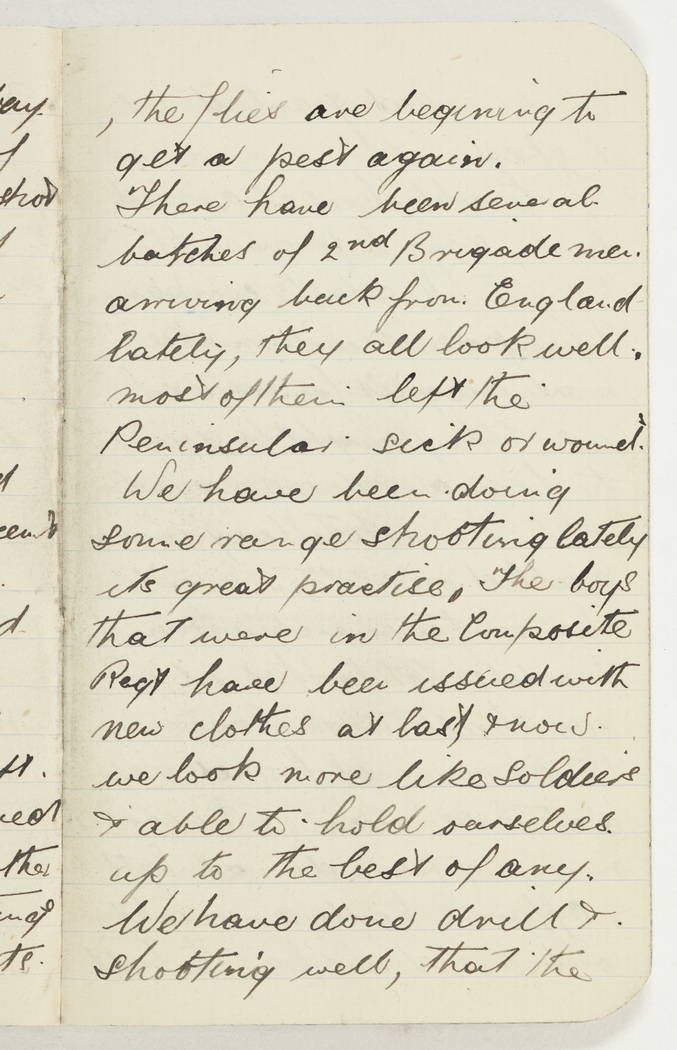 , the flies are begining to
get a pest again.
There have been several
batches of 2nd Brigade men.
arriving back from England
lately, they all look well.
most of them left the
Peninsular sick or wound.
We have been doing
some range shooting lately
its great practise, The boys
that were in the Composite
Regt have been issued with
new clothes at last & now
we look more like soldiers
& able to hold ourselves
up to the best of any.
We have done drill &
shooting well, that the